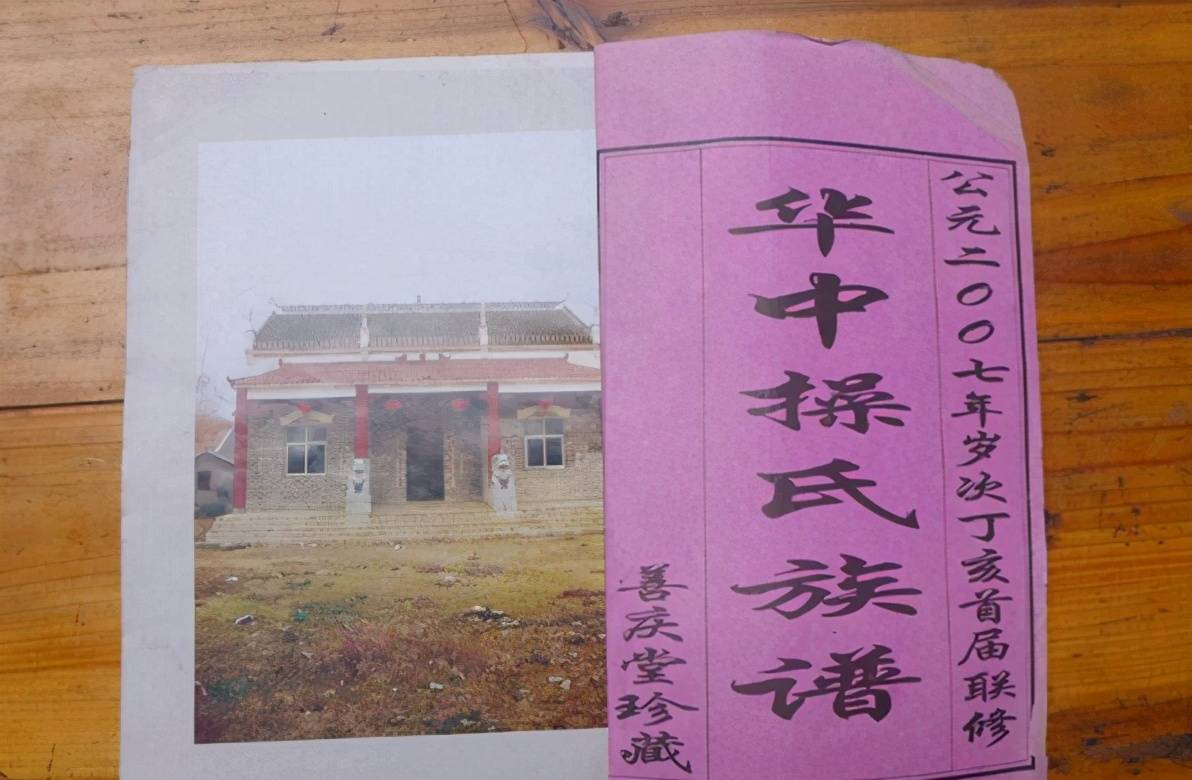 公元二〇〇七年岁次丁亥首届联修
华中操氏族谱
善庆堂珍藏